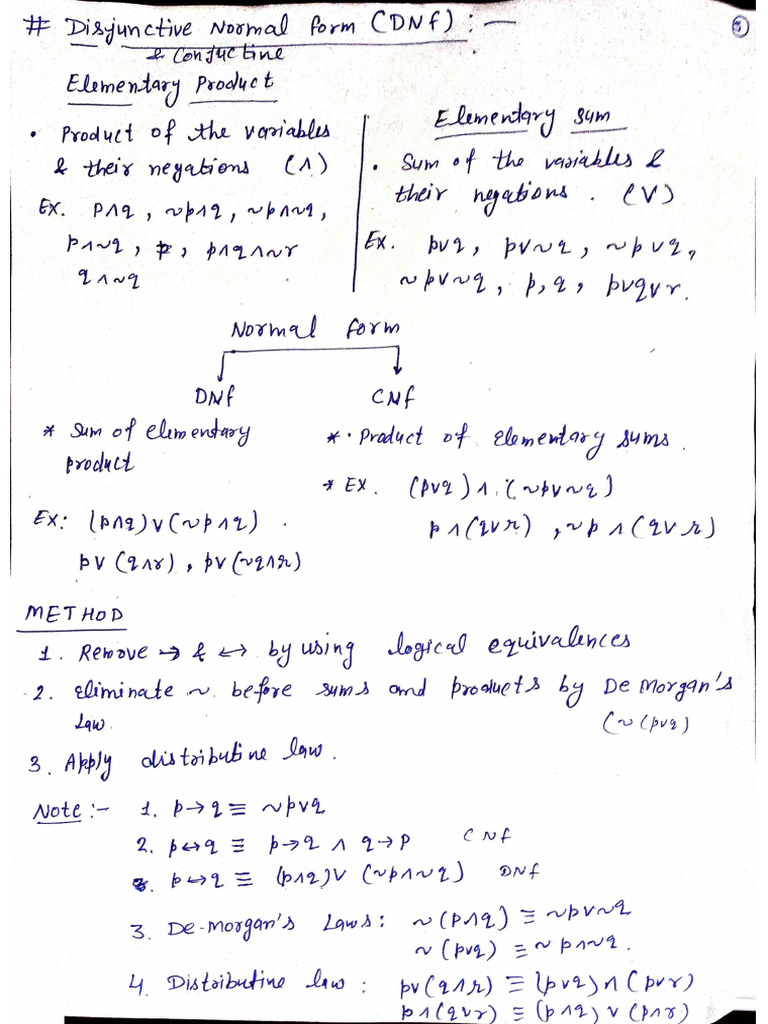 # Disjunctive Normal form (DNf) :-
& Conjuctine
5
Elementary Product
• Product of the variables
& their negations (∧)
Ex. p∧q , ~p∧q , ~p∧~q,
p∧~q , p, p∧q∧~r
q∧~q
Elementary sum
• Sum of the variables &
their negations . (∨)
Ex. p∨q, p∨~q, ~p∨q,
~p∨~q, p,q, p∨q∨r.
Normal form
DNf
CNf
* Sum of elementary
product
Ex: (p∧q)∨(~p∧q) .
p∨(q∧r) , p∨(~q∧r)
* • Product of elementary sums.
* Ex. (p∨q)∧.(~p∨~q)
p∧(q∨r) , ~p∧(q∨r)
METHOD
1. Remove → & ↔ by using logical equivalences
2. Eliminate ~ before sums and products by De Morgan's
Law. (~(p∨q)
3. Apply distributine law.
Note :- 1. p→q ≡ ~p∨q
2. p↔q ≡ p→q ∧ q→p CNf
p↔q ≡ (p∧q)∨(~p∧~q) DNf
3. De-morgan's Laws: ~(p∧q) ≡ ~p∨~q
~(p∨q) ≡ ~p∧~q.
4. Distributine law : p∨(q∧r) ≡ (p∨q)∧(p∨r)
p∧(q∨r) ≡ (p∧q)∨(p∧r)